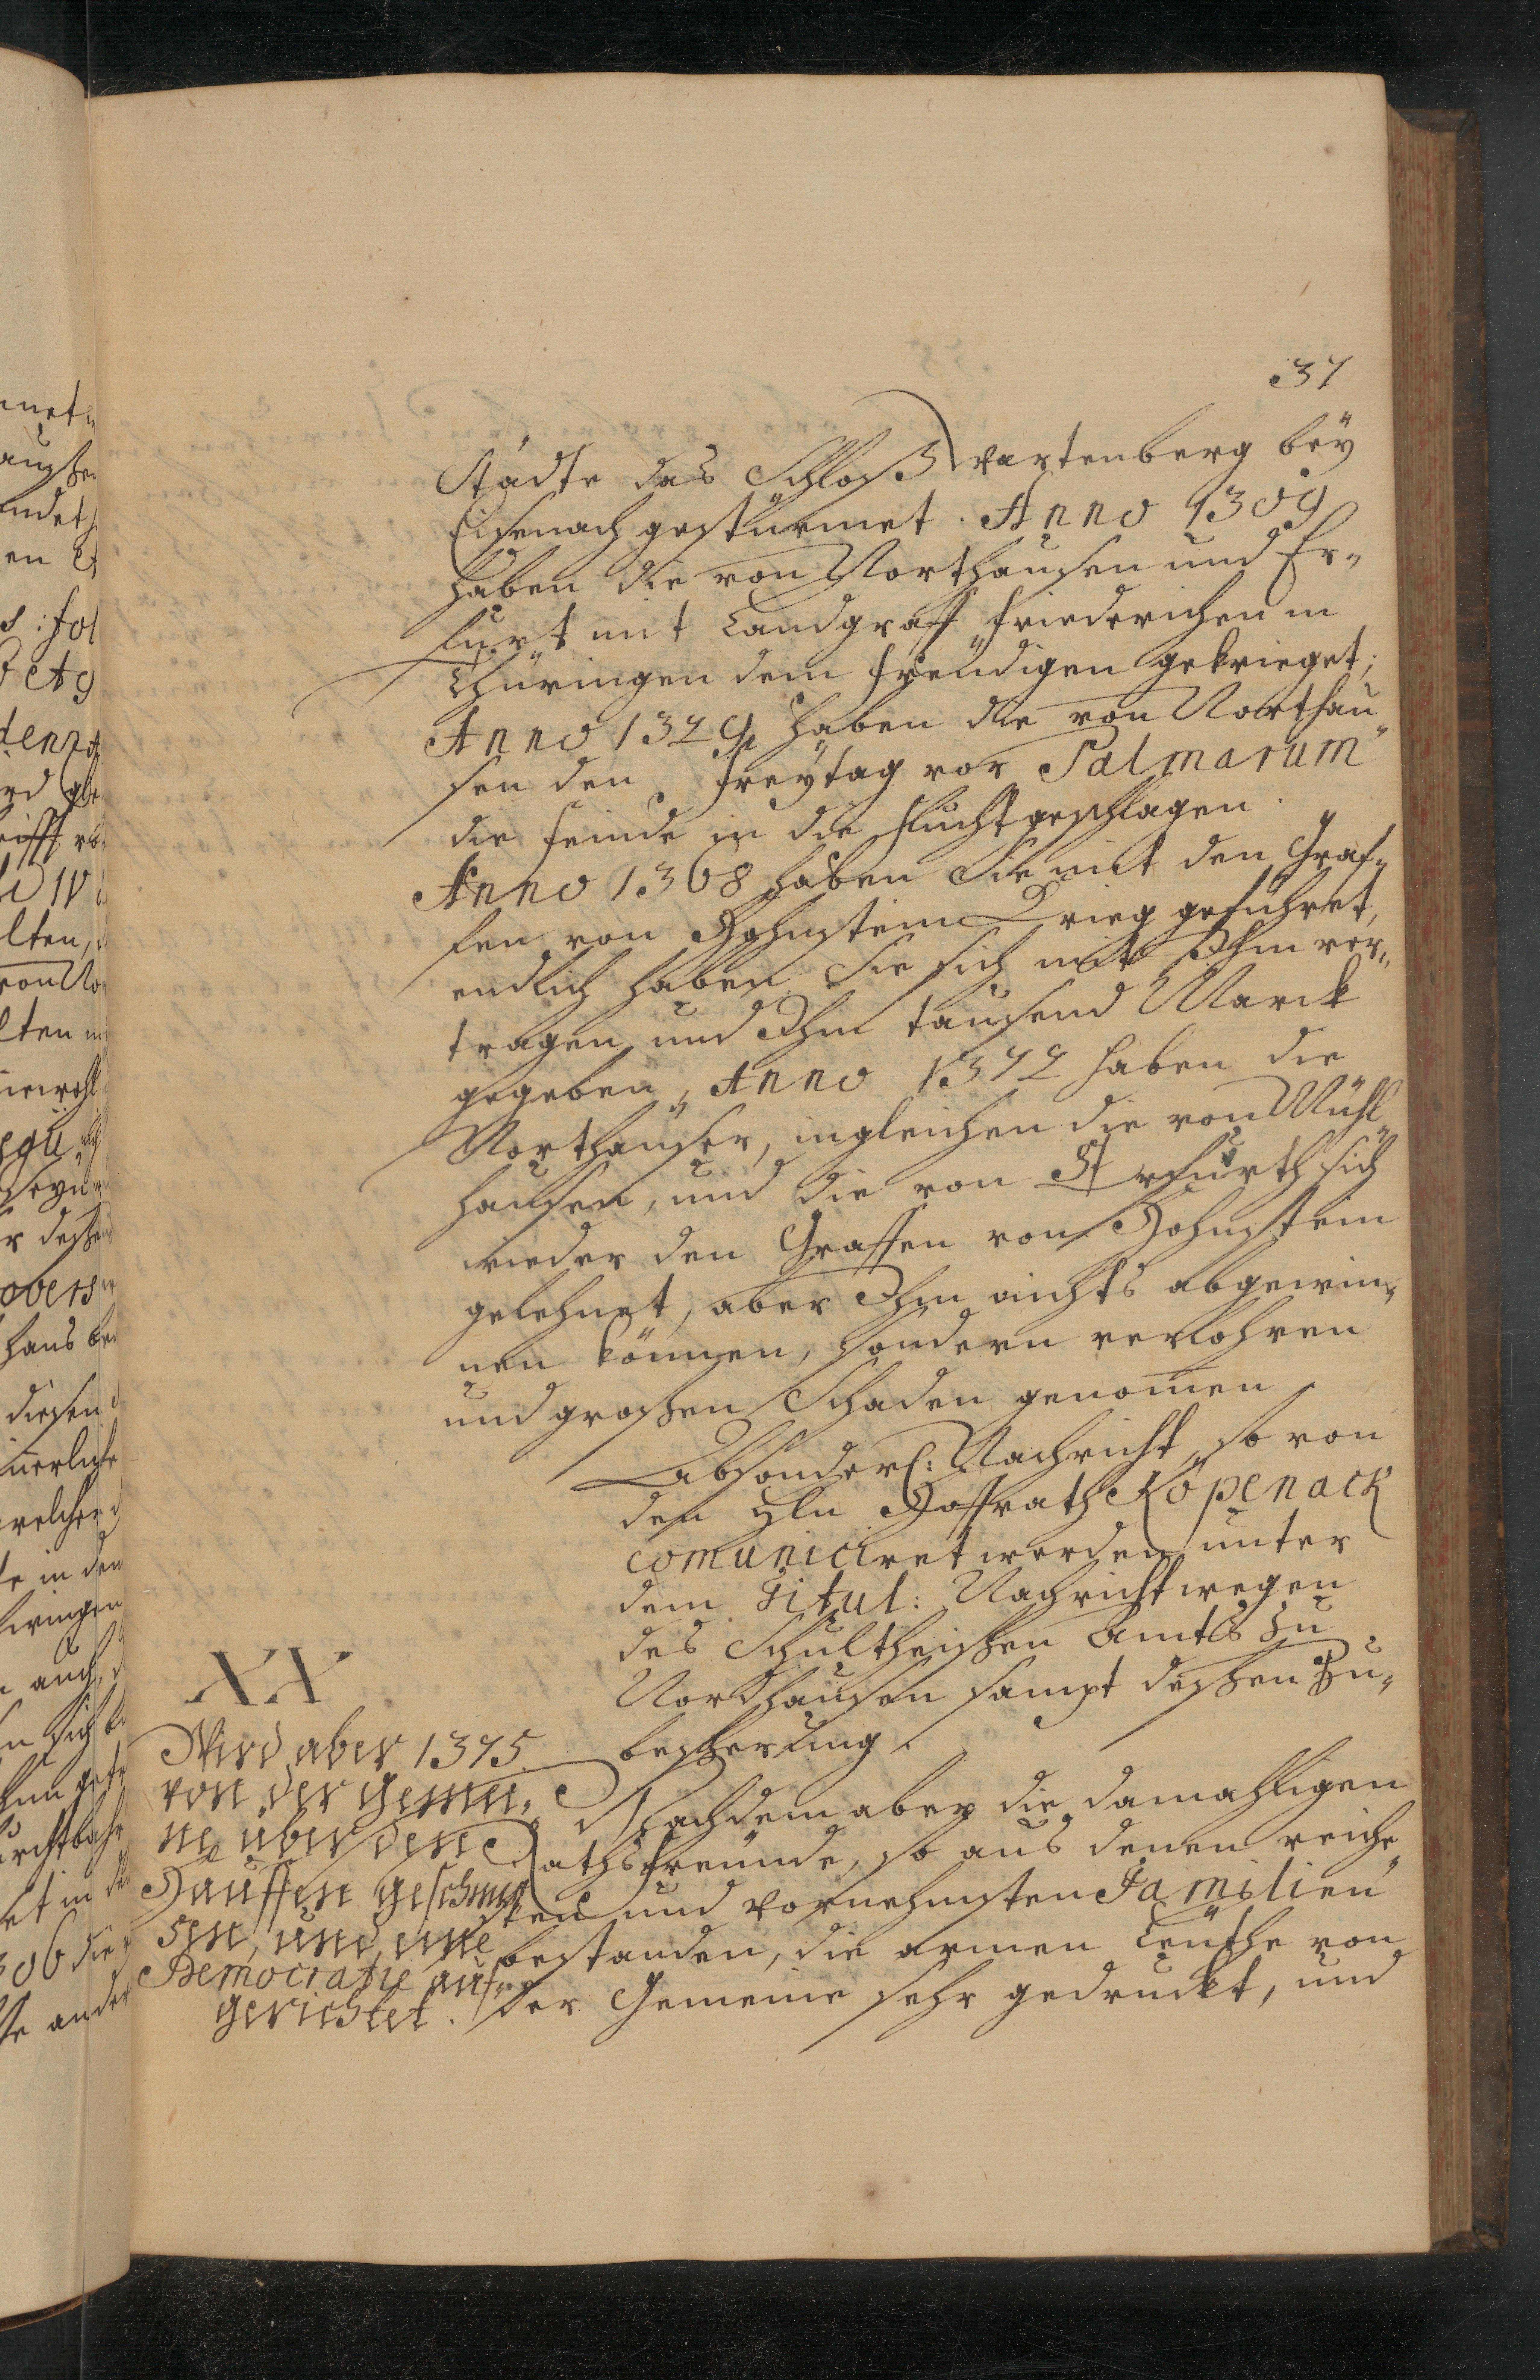 37
Städte das Schloß Wartenberg beÿ
Eisenach gestürmet. Anno 1309
haben die von Northausen und Er„
furt mit Landgraff Friederichen in
Thüringen dem freudigen gekrieget;
Anno 1329 haben die von Northau„
sen den Freÿtag vor Palmarum
die Feinde in die Flucht geschlagen.
Anno 1368 haben Sie mit den Graf„
fen von Hohnstein Krieg geführet,
endlich haben Sie sich mit Ihm ver„
tragen und Ihm tausend Marck
gegeben, Anno 1372 haben die
Northauser, ingleichen die von Mühl„
hausen, und die von Erfurth sich
wieder den Graffen von Hohnstein
gelehnet, aber Ihm nichts abgewin„
nen können, sondern verlohren
und großen Schaden genomen.
Absonderl: Nachricht, so von
den Hln Hoffrath Köpenack
comuniciret worden unter
dem Titul: Nachricht wegen
des Schultheißen Amts zu
Nordhausen sampt deßen Zu„
beßerung.
XX
Wird aber 1375.
von der Gemei„
ne über den
Hauffen geschmiß
sen, und eine
Democratie auf„
gerichtet.
Nachdem aber die damahligen
Rathsfreunde, so aus denen reiche„
sten und vornehmsten Familien
bestanden, die armen Leuthe von
der Gemeine sehr gedruckt, und